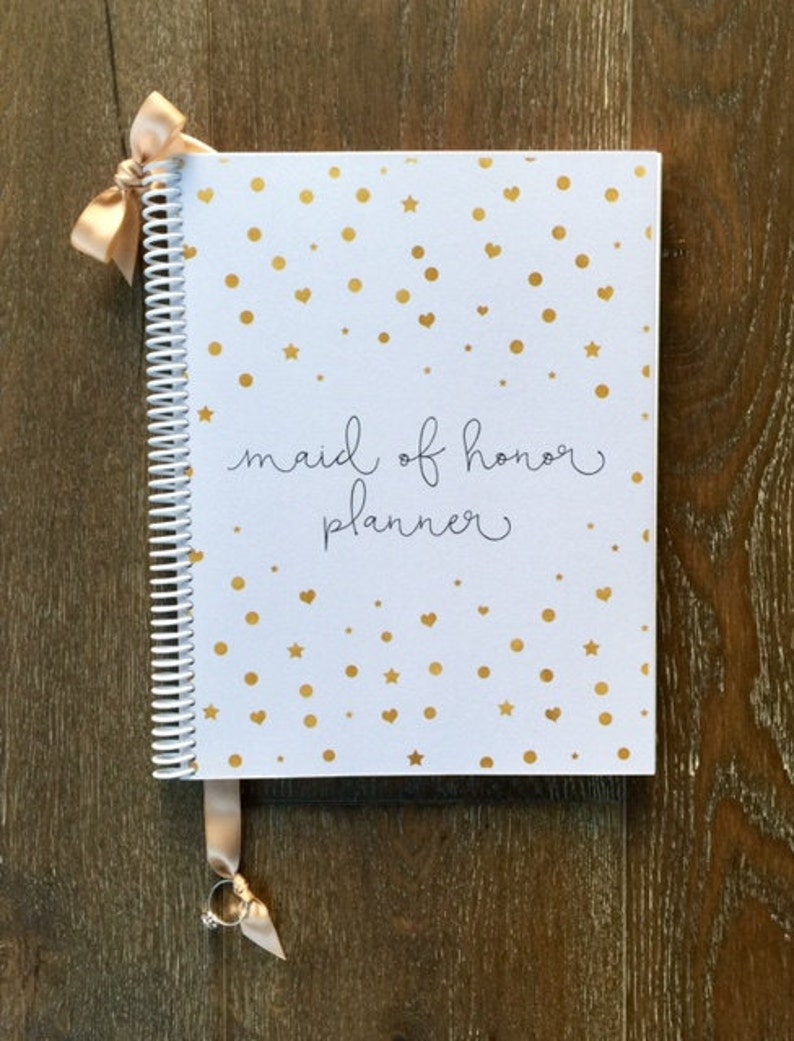 maid of honor
planner